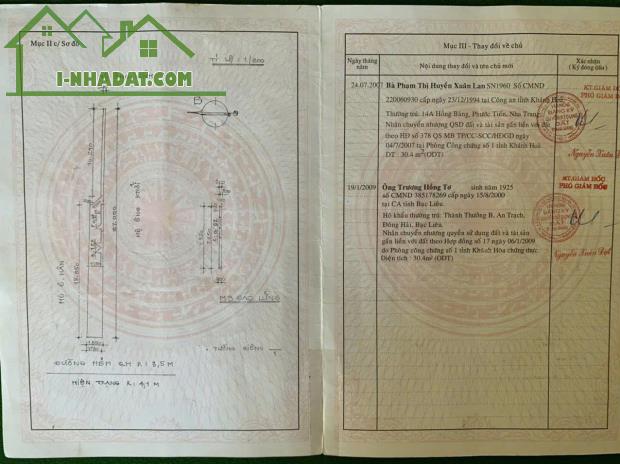 I-NHADAT.COM
KÊNH BẤT ĐỘNG SẢN
Mục II c/ Sơ đồ
TỈ LỆ 1/200
B
MB GÁC LỬNG
TƯỜNG RIÊNG
ĐƯỜNG HẺM QH R: 3,5 M
HIỆN TRẠNG R: 4,1 M
Mục III - Thay đổi về chủ
Ngày tháng năm
Nội dung thay đổi và tên chủ mới
Xác nhận
(Ký đóng dấu)
24.07.2007
Bà Phạm Thị Huyền Xuân Lan SN1960 Số CMND
220060930 cấp ngày 23/12/1994 tại Công an tỉnh Khánh Hoà.
Thường trú: 14A Hồng Bàng, Phước Tiến, Nha Trang.
Nhận chuyển nhượng QSD đất và tài sản gắn liền với đất
theo HĐ số 378 QS MB TP/CC-SCC/HĐGD ngày
04/7/2007 tại Phòng Công chứng số 1 tỉnh Khánh Hoà
DT 30.4 m²(ODT)
KT.GIÁM ĐỐC
PHÓ GIÁM ĐỐC
Nguyễn Xuân
19/1/2009
Ông Trương Hồng Tơ sinh năm 1925
số CMND 385178269 cấp ngày 15/8/2000
tại CA tỉnh Bạc Liêu.
Hộ khẩu thường trú: Thành Thưởng B, An Trạch,
Đông Hải, Bạc Liêu.
Nhận chuyển nhượng quyền sử dụng đất và tài sản
gắn liền với đất theo Hợp đồng số 17 ngày 06/1/2009
do Phòng công chứng số 1 tỉnh Khánh Hòa chứng thực.
Diện tích : 30.4m² (ODT)
KT.GIÁM ĐỐC
PHÓ GIÁM ĐỐC
Nguyễn Xuân Đạt